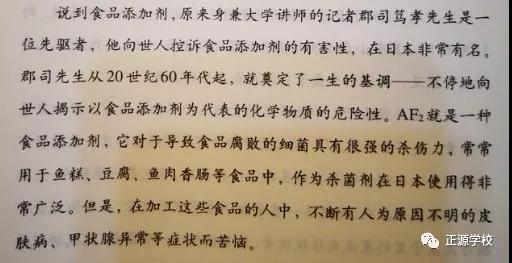 说到食品添加剂,原来身兼大学讲师的记者郡司笃孝先生是一
位先驱者,他向世人控诉食品添加剂的有害性,在日本非常有名。
郡司先生从20世纪60年代起,就奠定了一生的基调——不停地向
世人揭示以食品添加剂为代表的化学物质的危险性。AF₂就是一种
食品添加剂,它对于导致食品腐败的细菌具有很强的杀伤力,常常
用于鱼糕、豆腐、鱼肉香肠等食品中,作为杀菌剂在日本使用得非
常广泛。但是,在加工这些食品的人中,不断有人为原因不明的皮
肤病、甲状腺异常等症状而苦恼。
正源学校